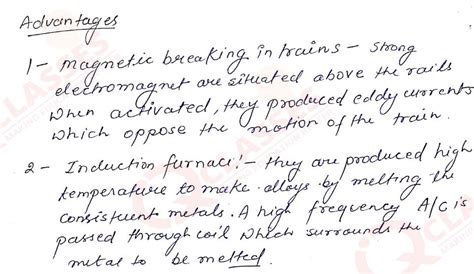 Advantages
1- magnetic breaking in trains - strong
electromagnet are situated above the rails
when activated, they produced eddy currents
which oppose the motion of the train.
2- Induction furnace:- they are produced high
temperature to make alloys by melting the
consistuent metals. A high frequency A/C is
passed through coil which surrounds the
metal to be melted.